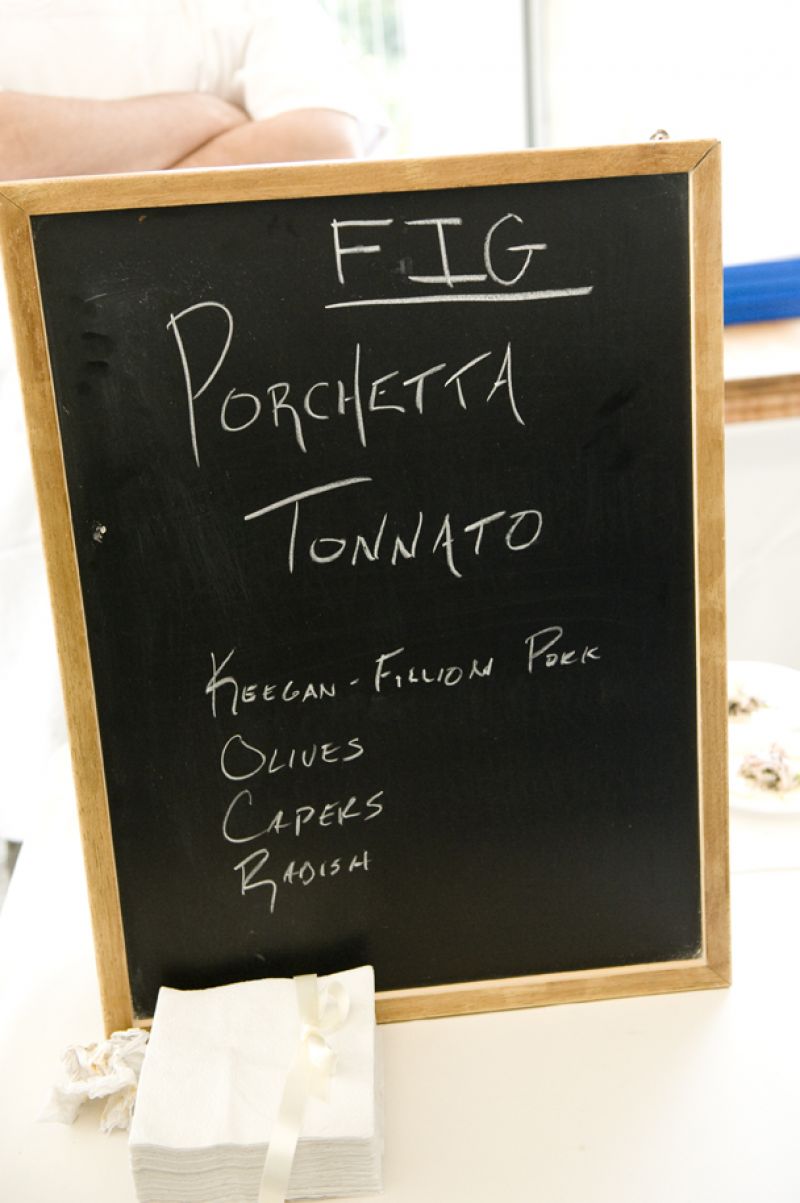 FIG
PORCHETTA
TONNATO
KEEGAN-FILLION PORK
OLIVES
CAPERS
RADISH